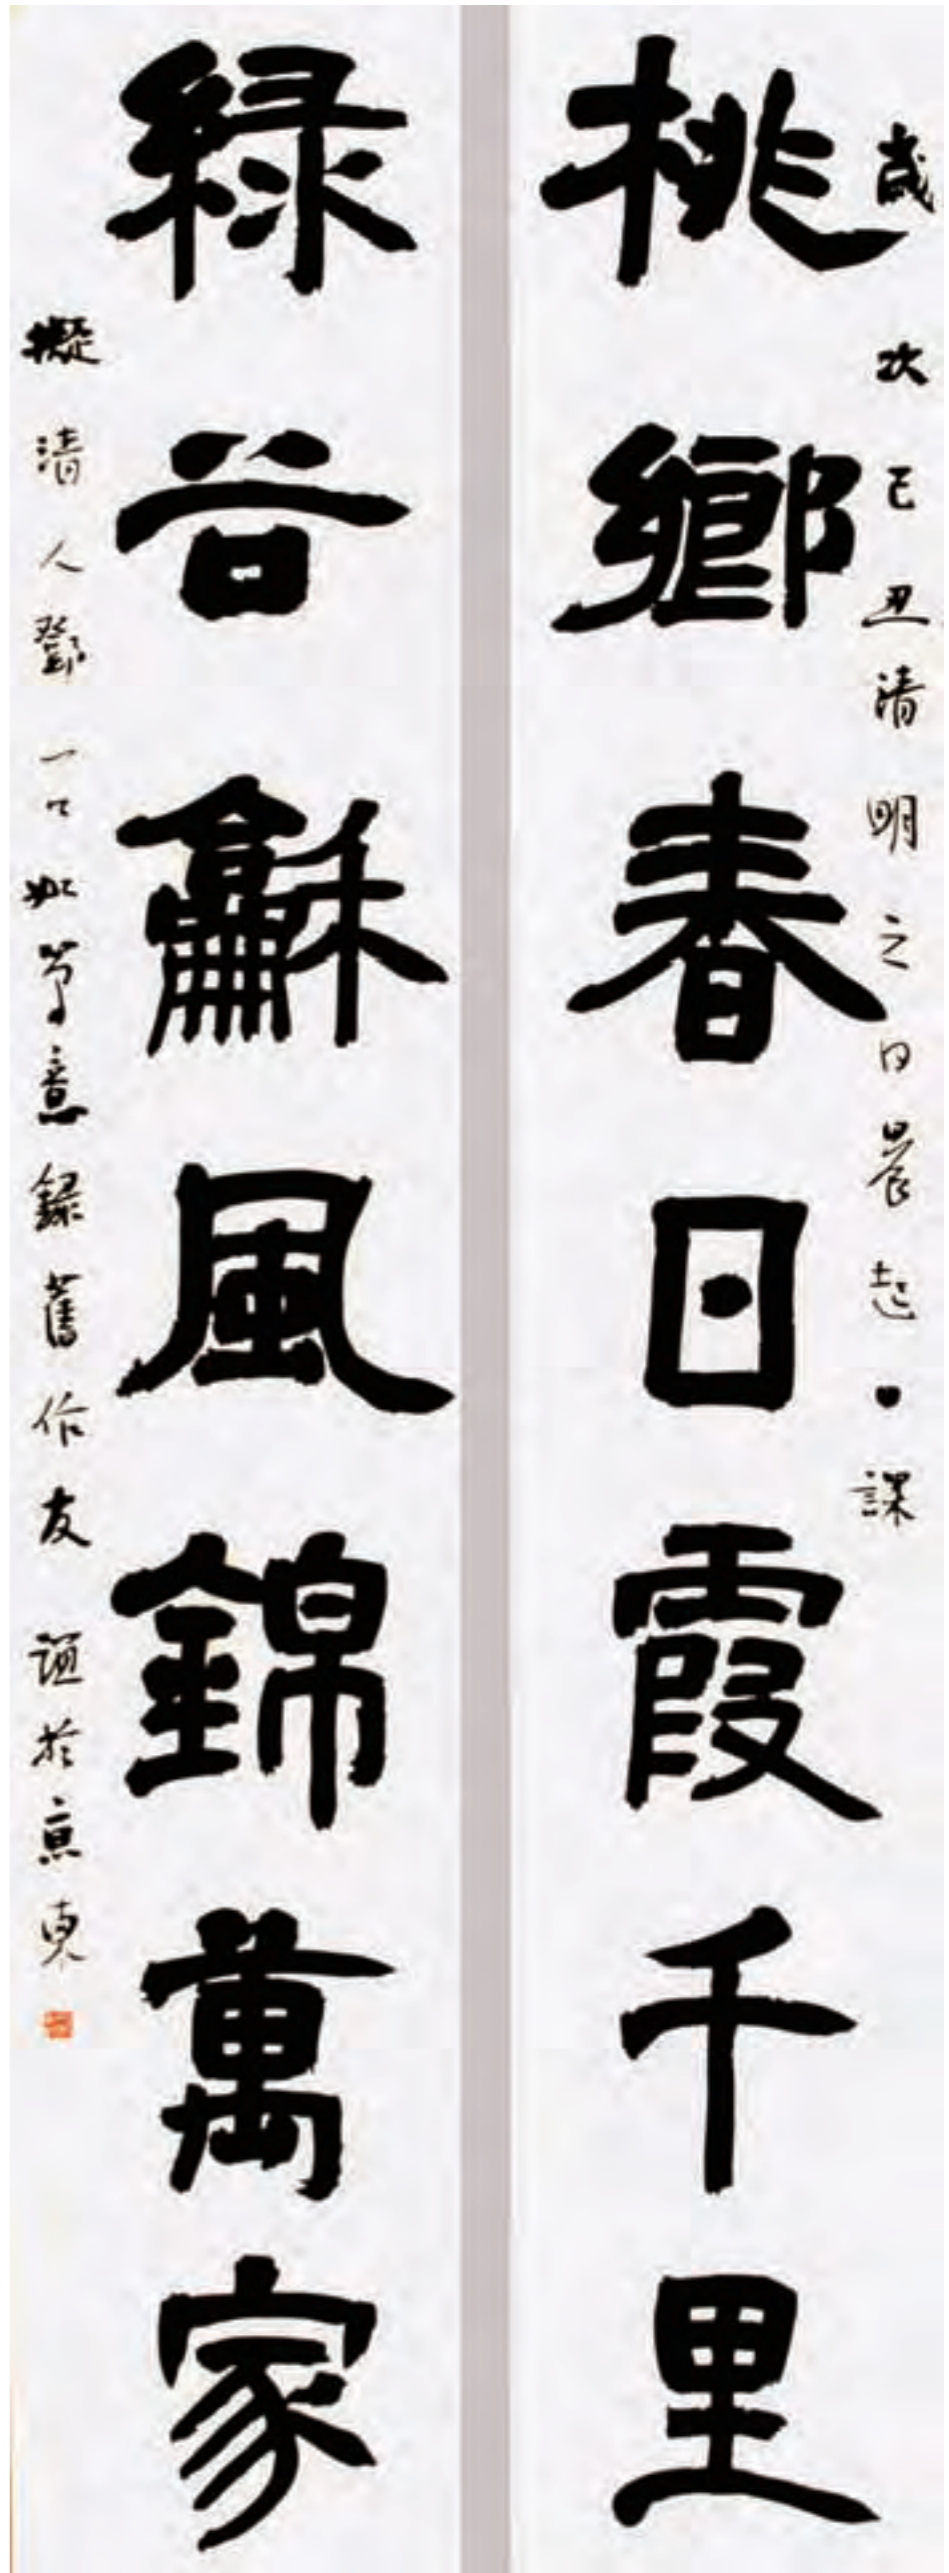 歲次己丑清明之日晨起日課
桃鄉春日霞千里
綠谷龢風錦萬家
擬清人鄧
意錄舊作友謙於京東